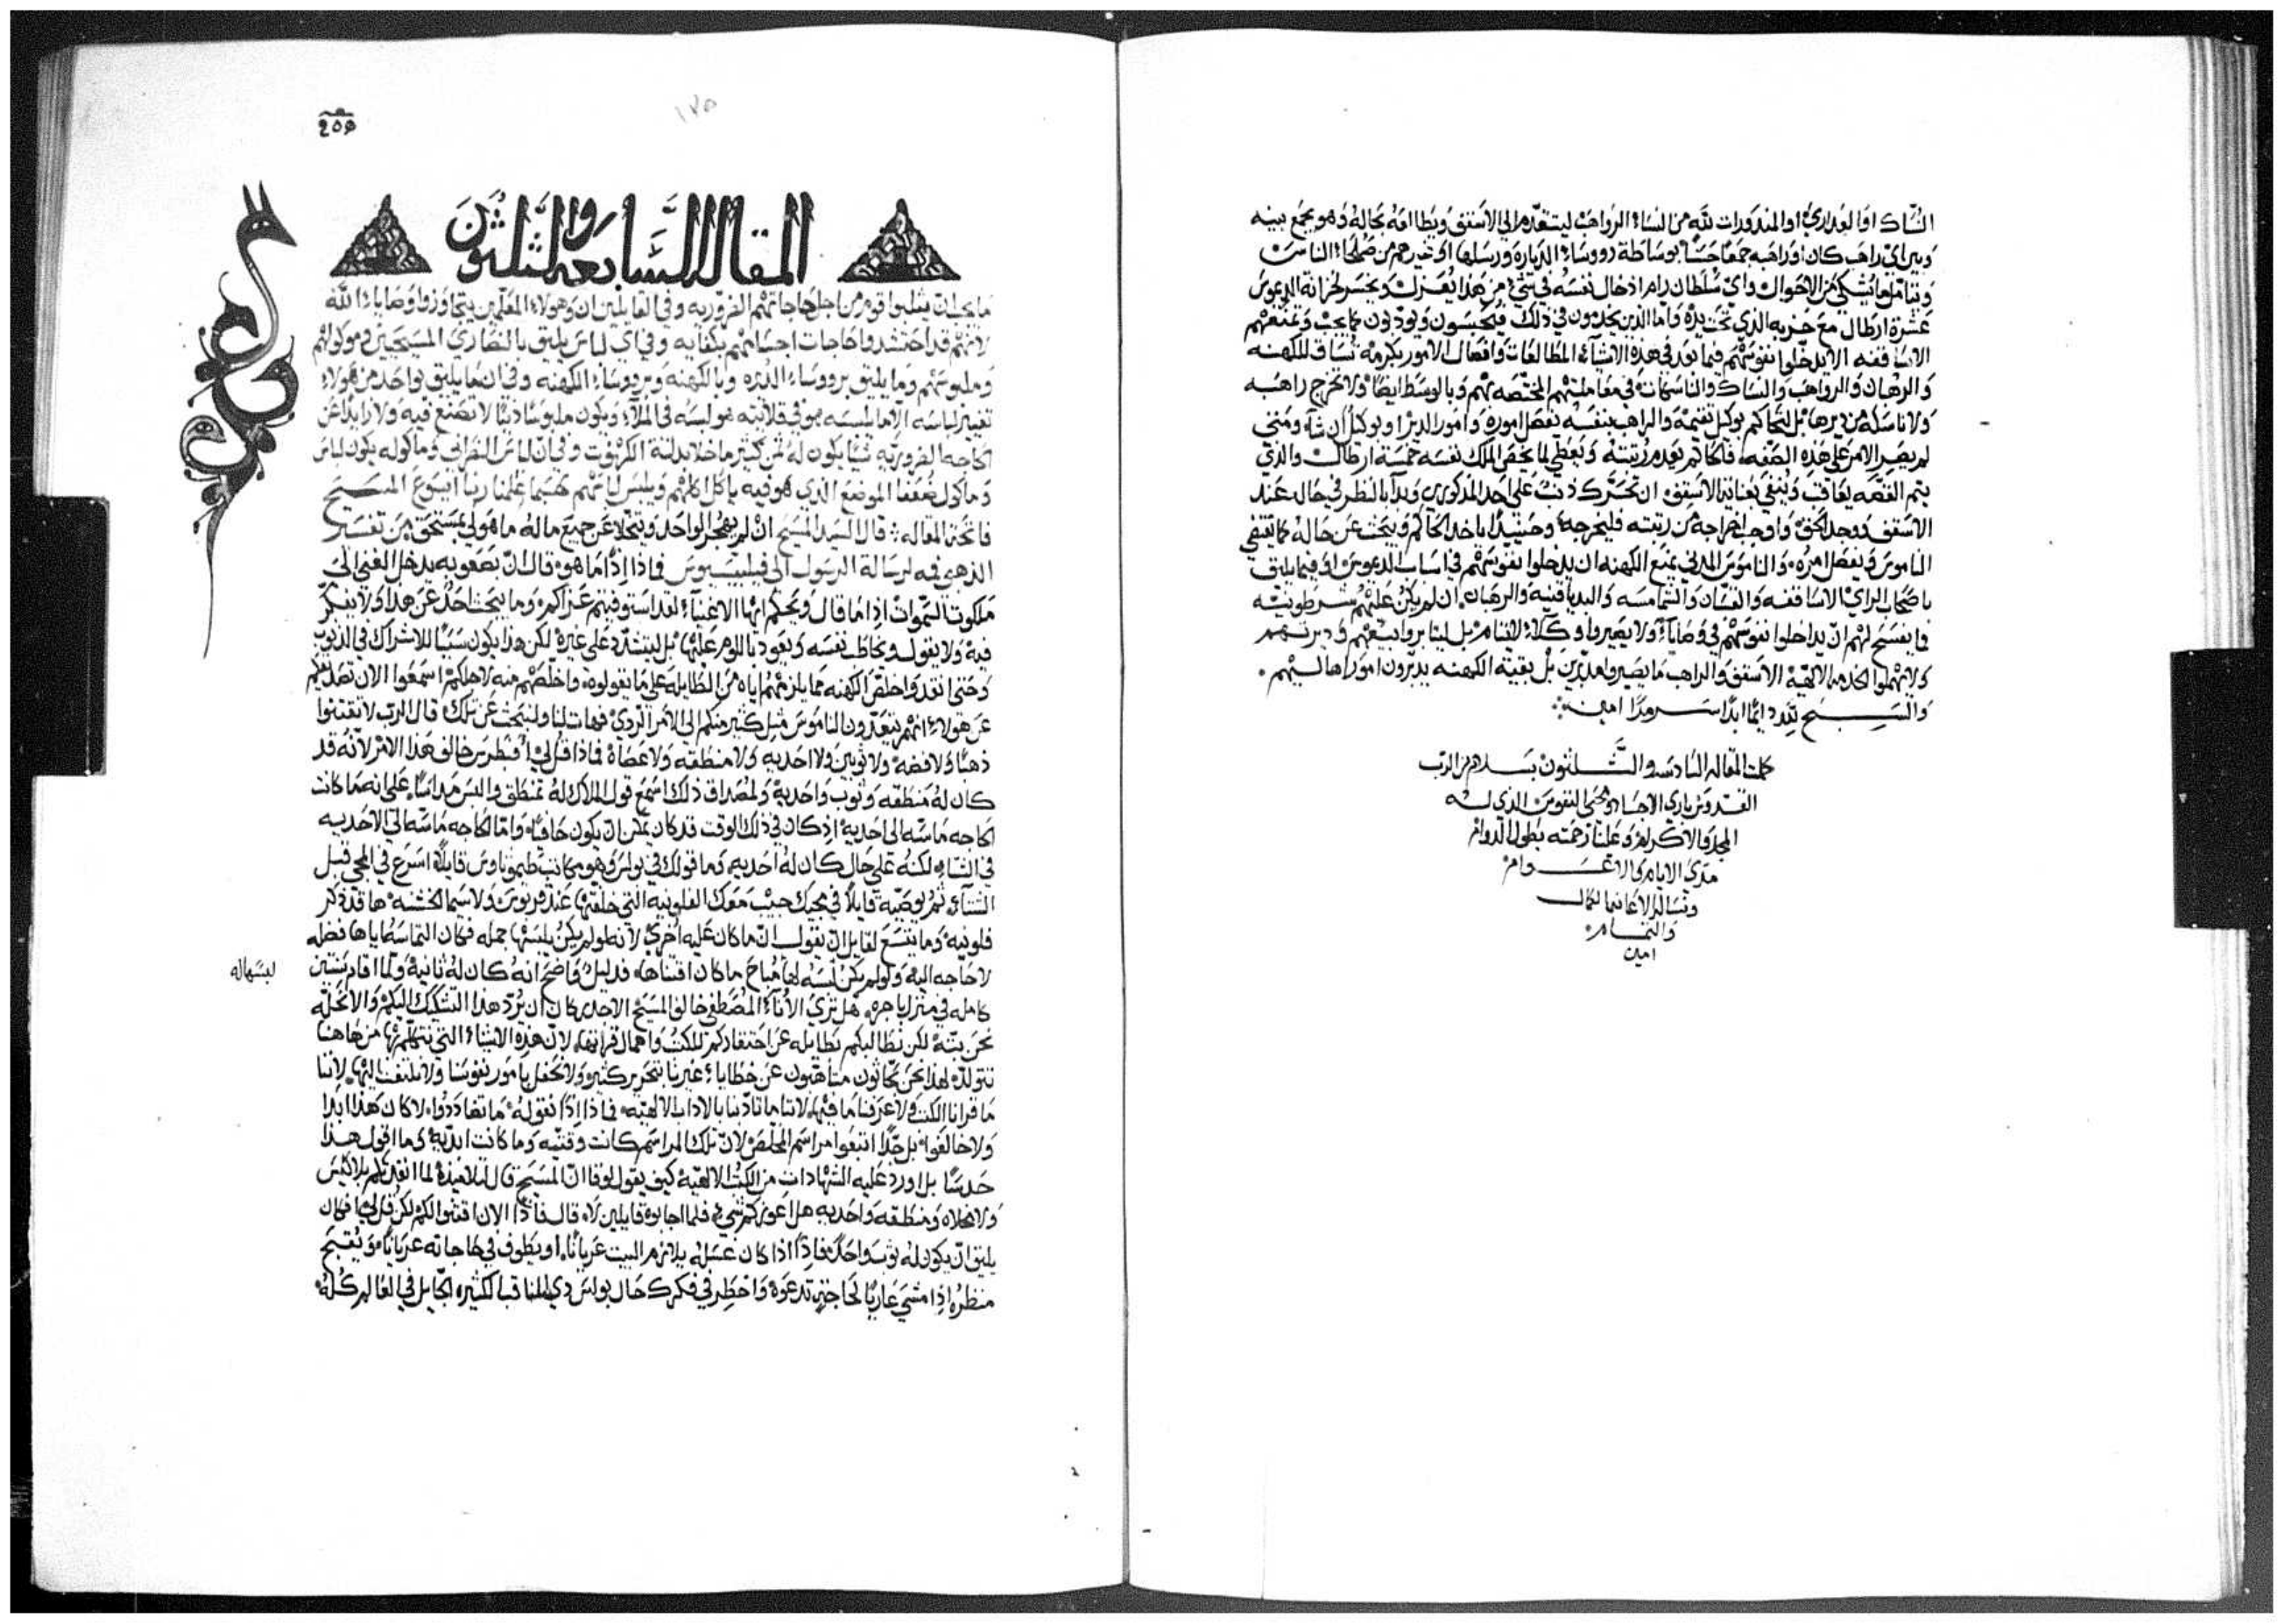 النسّاك او العذارى او المنذورات لله من النساء الرواهب ليتقدّم الى الاسقف ويطالعه بحاله وهو يجمع بينه
وبين اي راهب كان او راهبه جمعًا حسنًا بوساطة رووساء الدياره ورسلها او غيرهم من صلحاء الناس
الاحوال واي سلطان رام ادخال نفسه في شيء من هذا يعزل ويخسر لخزانة
عشرة ارطال مع حزبه الذي تحت يده واما الذين يخدمون في ذلك فيحبسون ويودبون كما يجب وتمنعهم
الاساقفه الا يدخلوا نفوسهم فيما بعد في هذه الاشياء المطالعات وافصال الامور بكرمه تساق للكهنه
والرهبان والرواهب والنساك والناسكات في معاملتهم المختصه بهم وبالوسط ايضًا ولا تخرج راهبه
ولا ناسكه من ديرها بل تحاكم بوكيل تقيمه والراهب بنفسه يفصل اموره وامور الدير او بوكيل ان شاء ومتى
لم يصر الامر على هذه الصفه فالحاكم يعدم رتبته ويعطي لما يخص الملك نفسه خمسة ارطال والذي
يتم القصه يعاقب وينفي بعناية الاسقف ان تحرك ذنب على احد المذكورين وبدا بالنظر في حاله عند
الاسقف ووجد لحقه واوجب اخراجه من رتبته فليخرجه وحينيذ ياخد الحاكم ويبحث عن حاله كما يقتضي
الناموس ويفصل امره والناموس المدني يمنع الكهنه ان يدخلوا نفوسهم في اسباب الدعوس او فيما يليق
باصحاب الراي الاساقفه والقسّان والشمامسه والرهبان ان لم يكن عليهم شرطونيه
فما يفسح لهم ان يداخلوا نفوسهم في وصاياء ولا يصيروا وكلاء بل ليثابروا بيعهم وديرتهم
ولا يهملوا الخدمه الالهيه الاسقف والراهب ما يصيروا مدبّرين بل بقية الكهنه يدبرون امور اهاليهم
والسبح لله دايمًا ابدًا سرمدًا امين
كملت المقاله السادسه والثلثون بسلام من الرب
القدوس باري الاجساد ومحيي النفوس الذي له
المجد والاكرام وعلينا رحمته بطول الدوام
مدى الايام والاعوام
ونساله الاعانه بالكمال
والتمام
امين
259
١٧٥
المقاله السابعه والثلثون
ما يجب ان يتسلوا قوم من اجل حاجاتهم الضروريه وفي القايلين ان هولاء المعلمين يتجاوزوا وصاياء الله
لانهم قد احتشدوا حاجات اجسامهم بكفايه وفي اي لباس يليق بالنصارى المسيحيين وماكولهم
وملبوسهم وما يليق برووساء الديره وبالكهنه وبرووساء الكهنه وفي ان ما يليق بواحد من هولاء
تغيير لباسه الا ما يلبسه هو في قلايته هو لبسه في الملاء ويكون ملبوسًا دنيًا لا تصنع فيه ولا زايدًا عن
الحاجه الضروريه شيئًا يكون له ثمن كثير ما خلا بدلة الكهنوت وفي ان لباس النصراني وماكوله يكون لباس
وماكول ضعفا الموضع الذي هو فيه ياكل اكلهم ويلبس لباسهم حسبما علمنا ربنا ايسوع المسيح
فاتحة المقاله قال السيد المسيح ان لم يهجر الواحد ويتخلا عن جميع ماله ما هو لي بمستحق من تفسير
الذهبي فمه لرسالة الرسول الى فيليبسيوس فماذا اذًا ما هو قال انّ بصعوبه يدخل الغني الى
ملكوت السموات اذًا ما قال ويحكم ايها الاغنياء لقد استوفيتم عزاكم وما يبحث احد عن هذا ولا يفكر
فيه ولا يقول ويخاطب نفسه ويعود باللوم عليها بل ليتشدّد على غيره لكن هذا يكون سببًا للاشتراك في الذنوب
وحتى انقد واخلص الكهنه مما يلزمهم اياه من الطايله على ما يقولوه واخلصهم منه لاجلكم اسمعوا الان
عن هولاء انهم يتعدّون الناموس مثل كثير منكم الى الامر الردي فهات لنا ولنبحث عن تلك قال الرب لا تقتنوا
ذهبًا ولا فضه ولا ثوبين ولا احذيه ولا منطقه ولا عصاه فماذا قل لي افبطرس خالف هذا الامر لانه قد
كان له منطقه وثوب واحذيه ولمصداق ذلك اسمع قول الملاك له تمنطق والبس مداسًا على انه ما كانت
الحاجه ماسّه الى احذيه اذ كان في ذلك الوقت قد كان يمكن ان يكون حافيًا واما الحاجه ماسّه الى الاحذيه
في الشتاء لكنه على حال كان له احذيه وما قولك في بولس وهو مكاتب طيموثاوس قايلًا اسرع في المجي قبل
الشتاء ثم يوصيه قايلًا في مجيك جيب معك الفلونيه التي خلفتها عند قربوس ولا سيما الكتب ها قد ذكر
فلونيه وما يتسع لقايل ان يقول انّ ما كان عليه اخرى لانه لو لم يكن يلبسها جمله فكان التماسه اياها فضله
لا حاجه اليه ولو لم يكن لبسه لها مباح ما كان اقتناها فدليل واضح انه كان له ثانيه ولما اقام سنتين
لبسهاله
كامله في منزل باجره هل ترى الاناء المصطفى خالف المسيح الاحدى كان ان يُردّ هذا التشكيك اليكم والا نحله
نحن بتّه لكن نطالبكم بطايله عن احتقاركم للكتب واهمال قراتها لان هذه الاشياء التي نتهكّمها من هاهنا
تتولّد لهذا نحن بحّاثون متاهبون عن خطاياء غيرنا بتحرير كثير ولا نحفل بامور نفوسنا ولا نلتفت اليها لاننا
ما قرانا الكتب ولا عرفنا ما فيها لاننا ما تادّبنا بالاداب الالهيه فماذا اذًا نقوله ما تضاددوا لا كان هذا ابدًا
ولا خالفوا بل جدًا اتبعوا مراسم المخلص لان تلك المراسم كانت وقتيه وما كانت ابديه وما اقول هذا
حدسًا بل اورد عليه الشهادات من الكتب الالهيه كيف يقول لوقا ان المسيح قال لتلاميذه لما انفذتكم بلا كيس
ولا مخلاه ومنطقه واحذيه هل اعوزكم شيء فلما اجابوه قايلين لا قال فاذًا الان اقتنوا لكم لكن قل لي افكان
يليق ان يكون له ثوب واحد فاذًا اذا كان غسله يلازم البيت عريانًا او يطوف في حاجاته عريانًا ويقبح
منظره اذا مشي عاريًا لحاجة تدعوه واخطر في فكرك حال بولس دي المناقب الكثيره الجايل في العالم كله